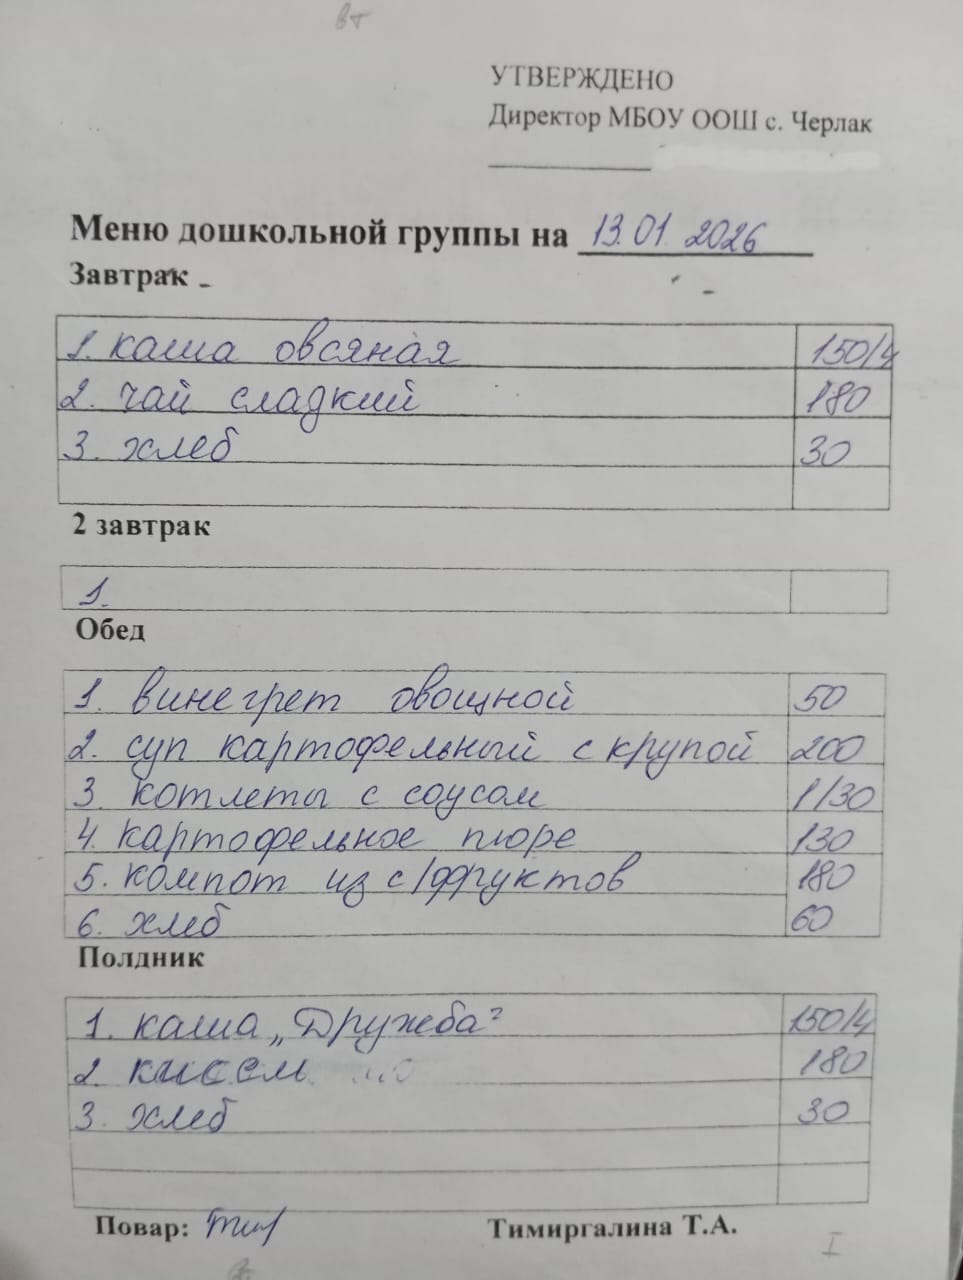 вт
УТВЕРЖДЕНО
Директор МБОУ ООШ с. Черлак
Меню дошкольной группы на 13.01 2026
Завтрак
1. каша овсяная 150/4
2. чай сладкий 180
3. хлеб 30
2 завтрак
1.
Обед
1. винегрет овощной 50
2. суп картофельный с крупой 200
3. котлеты с соусом 1/30
4. картофельное пюре 130
5. компот из с/фруктов 180
6. хлеб 60
Полдник
1. каша „Дружба" 150/4
2. кисель 180
3. хлеб 30
Повар: Тимиргалина Т.А.
I